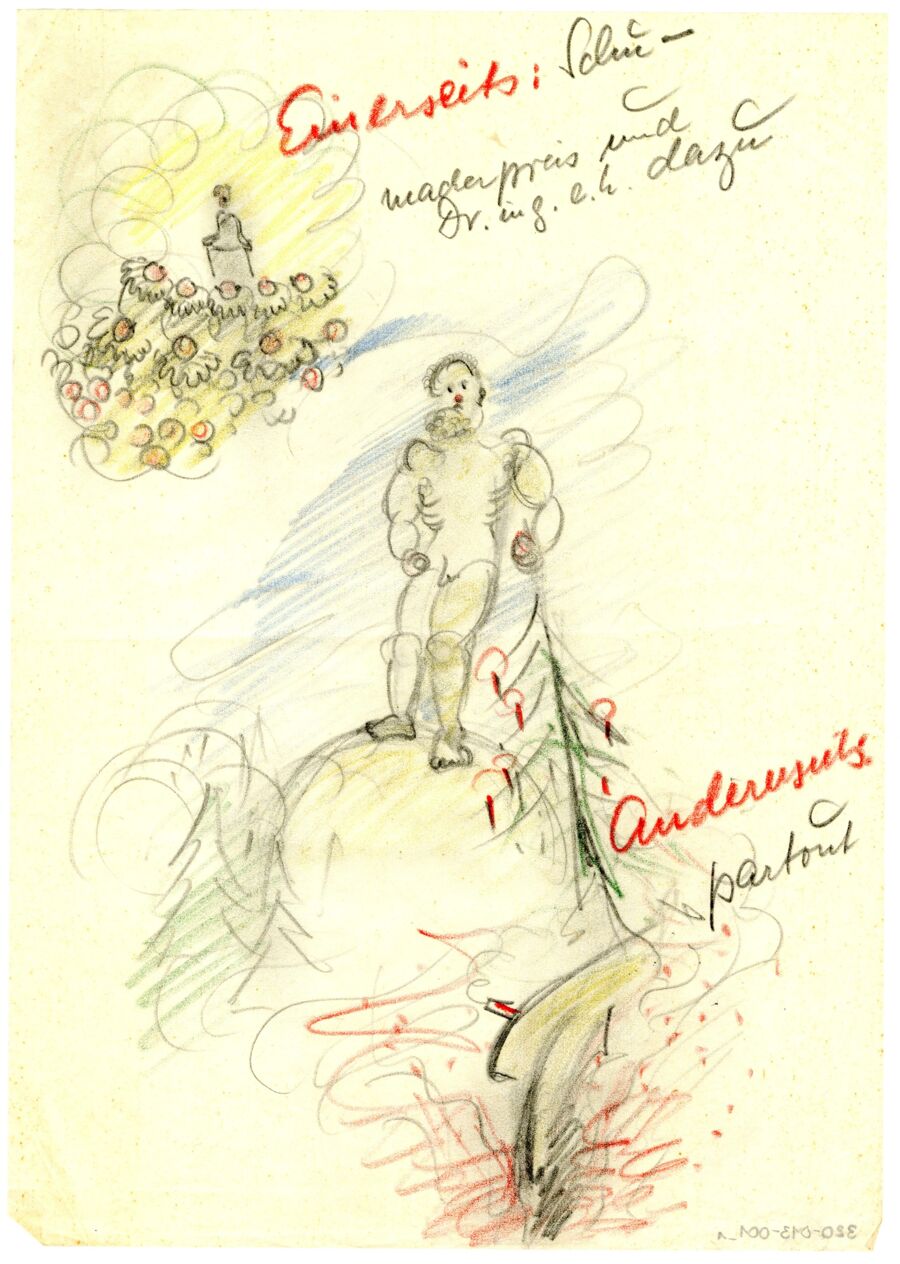 Einerseits: Schu-
macherpreis und
Dr. ing. e.h. dazu
Anderseits
partout
320-013-001_1